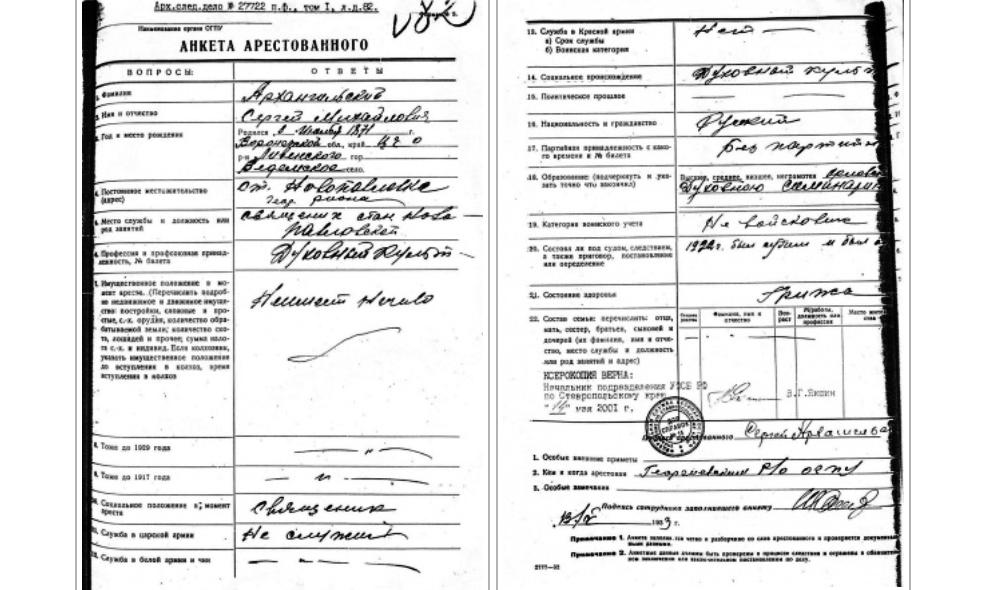 Арх.след.дело № 27722 п.ф., том I, л.д.82.
Наименование органа ОГПУ
АНКЕТА АРЕСТОВАННОГО
ВОПРОСЫ: ОТВЕТЫ
1. Фамилия Архангельский
2. Имя и отчество Сергей Михайлович
3. Год и место рождения Родился в 1871 г.
Воронежской обл. край ЦЧО
р-н Ливенского гор.
село.
4. Постоянное местожительство
(адрес)
ст. Новопавловка
Геор. района
5. Место службы и должность или
род занятий
священик стан Ново-
павловской
6. Профессия и профсоюзная принад-
лежность, № билета
Духовный культ —
7. Имущественное положение в мо-
мент ареста. (Перечислить подроб-
но недвижимое и движимое имуще-
ство: постройки, сложные и про-
стые, с.-х. орудия, количество обра-
батываемой земли; количество ско-
та, лошадей и прочее; сумма нало-
га с.-х. и индивид. Если колхозник,
указать имущественное положение
до вступления в колхоз, время
вступления в колхоз
8. Тоже до 1929 года — „ —
9. Тоже до 1917 года — „ —
10. Социальное положение в момент
ареста
Священик
11. Служба в царской армии Не служил
12. Служба в белой армии и чин —
13. Служба в Красной армии
а) Срок службы
б) Воинская категория
Нет —
14. Социальное происхождение Духовный культ
15. Политическое прошлое —
16. Национальность и гражданство Русский
17. Партийная принадлежность с како-
го времени и № билета
Без партийн
18. Образование (подчеркнуть и указ-
зать точно что закончил)
Высшее, среднее, низшее, неграмотн
Духовною Семинарию
19. Категория воинского учета
20. Состоял ли под судом, следствием,
а также приговор, постановление
или определение
1922г. был судим и был
21. Состояние здоровья Грыжа
22. Состав семьи: перечислить: отца,
мать, сестер, братьев, сыновей и
дочерей (их фамилия, имя и отче-
ство, место службы и должность
или род занятий и адрес)
Фамилия, имя и отчество Воз-раст М/работы, должность или профессия
КСЕРОКОПИЯ ВЕРНА:
Начальник подразделения УФСБ РФ
по Ставропольскому краю В.Г.Яксин
" 14 " мая 2001 г.
Подпись арестованного Сергей
1. Особые внешние приметы
2. Кем и когда арестован Георгиевским Р/о ОГПУ
3. Особые замечания
Подпись сотрудника заполнившего анкету
1933 г.
Примечание 1. Анкета заполняется четко и разборчиво со слов арестованного и проверяется документаль-
ными данными.
Примечание 2. Анкетные данные должны быть проверены в процессе следствия и отражены в обвинит
ном заключении или заключительном постановлении по делу.